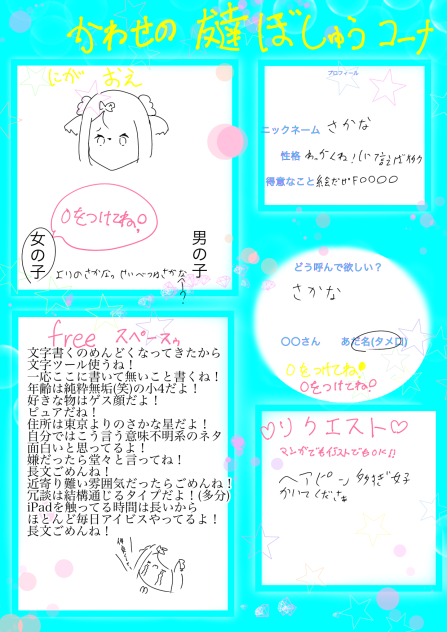 かわせの 友達 ぼしゅう コーナー
にがおえ
プロフィール
ニックネーム さかな
性格
得意なこと 絵だけドOOOO
Oをつけてね。O
女の子
男の子
どう呼んで欲しい？
さかな
〇〇さん
あだ名(タメ口)
Oをつけてね!O
Oをつけてね?O
free スペースっ
文字書くのめんどくなってきたから
文字ツール使うね！
一応ここに書いて無いこと書くね！
年齢は純粋無垢(笑)の小4だよ！
好きな物はゲス顔だよ！
ピュアだね！
住所は東京よりのさかな星だよ！
自分ではこう言う意味不明系のネタ
面白いと思ってるよ！
嫌だったら堂々と言ってね！
長文ごめんね！
近寄り難い雰囲気だったらごめんね！
冗談は結構通じるタイプだよ！(多分)
iPadを触ってる時間は長いから
ほとんど毎日アイビスやってるよ！
長文ごめんね！
♡リクエスト♡
マンガでもイラストでもOK!!
ヘアピン多すぎ女子
かいてください